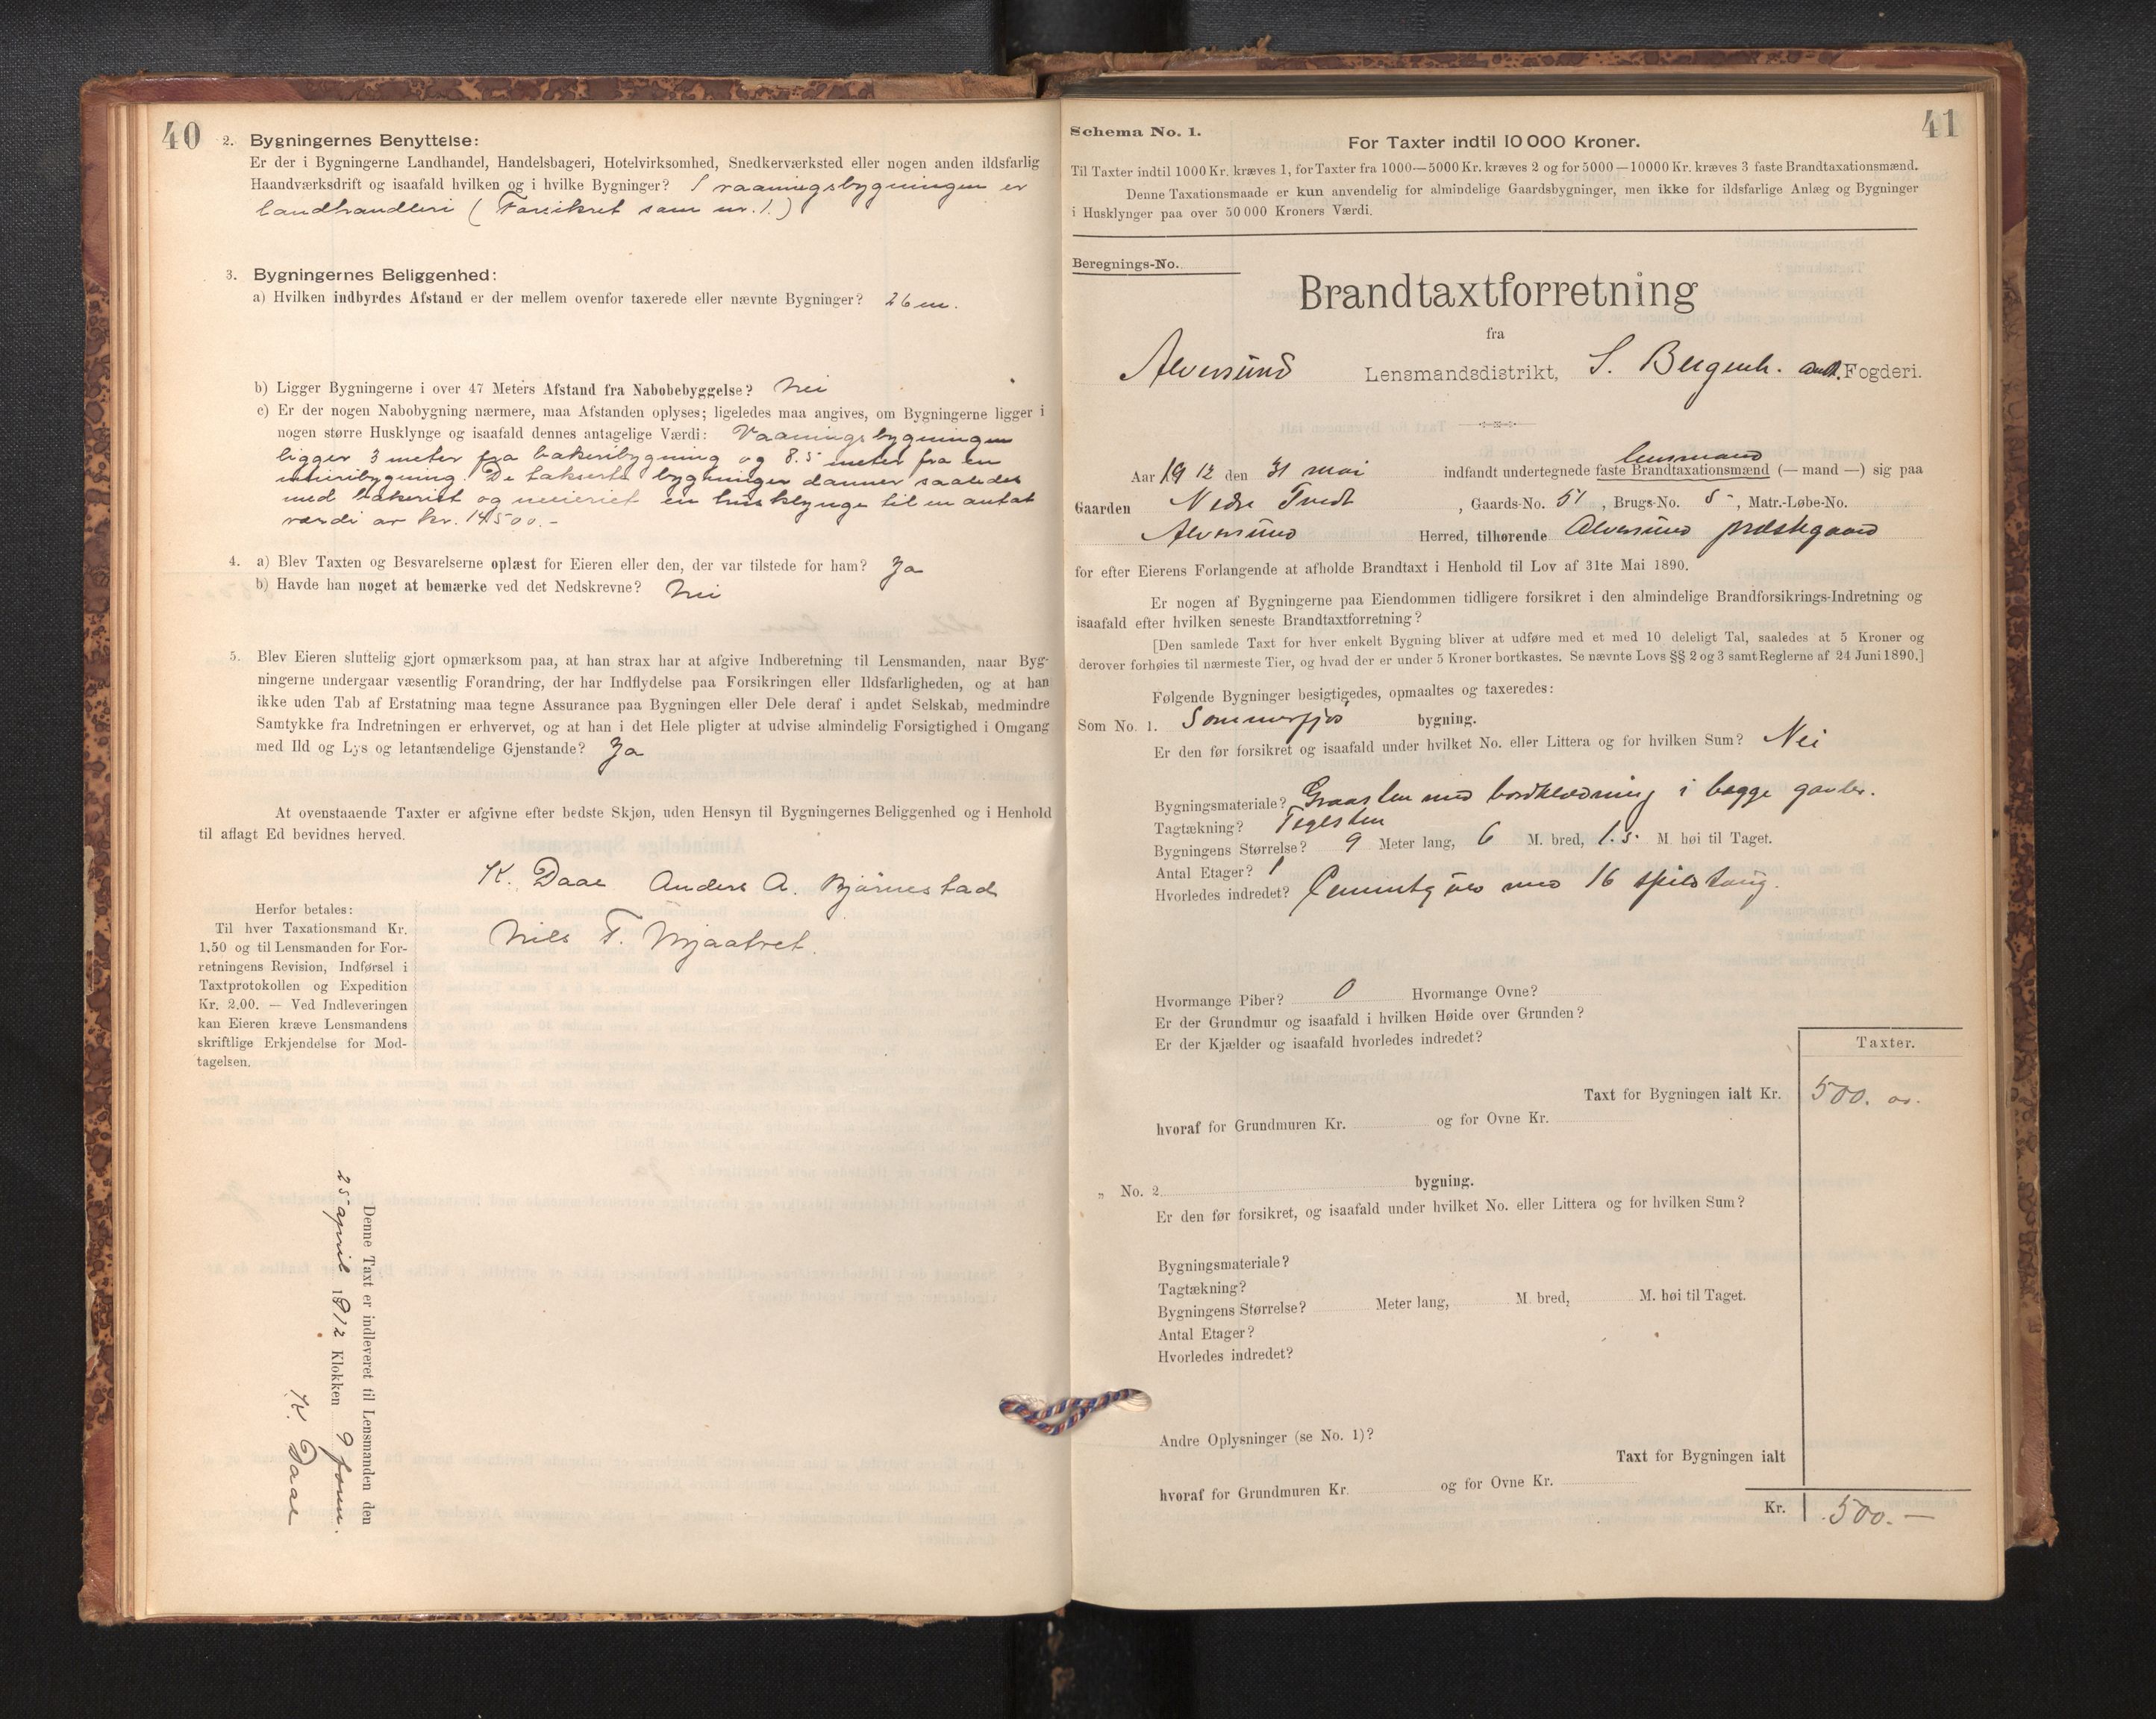 40
2. Bygningernes Benyttelse:
Er der i Bygningerne Landhandel, Handelsbageri, Hotelvirksomhed, Snedkerværksted eller nogen anden ildsfarlig
Haandværksdrift og isaafald hvilken og i hvilke Bygninger? I vaaningsbygningen er
landhandleri (Forsikret som nr. 1.)
3. Bygningernes Beliggenhed:
a) Hvilken indbyrdes Afstand er der mellem ovenfor taxerede eller nævnte Bygninger? 26 m.
b) Ligger Bygningerne i over 47 Meters Afstand fra Nabobebyggelse? Nei
c) Er der nogen Nabobygning nærmere, maa Afstanden oplyses; ligeledes maa angives, om Bygningerne ligger i
nogen større Husklynge og isaafald dennes antagelige Værdi: Vaaningsbygningen
ligger 3 meter fra bakeribygning og 8.5 meter fra en
meieribygning. De takserte bygninger danner saaledes
med bakeriet og meieriet en husklynge til en antat
værdi av kr. 14500.-
4. a) Blev Taxten og Besvarelserne oplæst for Eieren eller den, der var tilstede for ham? Ja
b) Havde han noget at bemærke ved det Nedskrevne? Nei
5. Blev Eieren sluttelig gjort opmærksom paa, at han strax har at afgive Indberetning til Lensmanden, naar Byg-
ningerne undergaar væsentlig Forandring, der har Indflydelse paa Forsikringen eller Ildsfarligheden, og at han
ikke uden Tab af Erstatning maa tegne Assurance paa Bygningen eller Dele deraf i andet Selskab, medmindre
Samtykke fra Indretningen er erhvervet, og at han i det Hele pligter at udvise almindelig Forsigtighed i Omgang
med Ild og Lys og letantændelige Gjenstande? Ja
At ovenstaaende Taxter er afgivne efter bedste Skjøn, uden Hensyn til Bygningernes Beliggenhed og i Henhold
til aflagt Ed bevidnes herved.
K. Daae Anders A. Bjørnestad
Nils T.
Herfor betales:
Til hver Taxationsmand Kr.
1,50 og til Lensmanden for For-
retningens Revision, Indførsel i
Taxtprotokollen og Expedition
Kr. 2.00. — Ved Indleveringen
kan Eieren kræve Lensmandens
skriftlige Erkjendelse for Mod-
tagelsen.
Denne Taxt er indleveret til Lensmanden den
25 april 1912 Klokken 9 form.
K. Daae
41
Schema No. 1.
For Taxter indtil 10 000 Kroner.
Til Taxter indtil 1000 Kr. kræves 1, for Taxter fra 1000—5000 Kr. kræves 2 og for 5000—10000 Kr. kræves 3 faste Brandtaxationsmænd.
Denne Taxationsmaade er kun anvendelig for almindelige Gaardsbygninger, men ikke for ildsfarlige Anlæg og Bygninger
i Husklynger paa over 50 000 Kroners Værdi.
Beregnings-No.
Brandtaxtforretning
fra
Alversund Lensmandsdistrikt, S. Bergenh. amt. Fogderi.
lensmand
Aar 1912 den 31 mai indfandt undertegnede faste Brandtaxationsmænd (— mand —) sig paa
Gaarden Nedre Tvedt , Gaards-No. 51 , Brugs-No. 5 , Matr.-Løbe-No.
Alversund Herred, tilhørende Alversund prestegaard
for efter Eierens Forlangende at afholde Brandtaxt i Henhold til Lov af 31te Mai 1890.
Er nogen af Bygningerne paa Eiendommen tidligere forsikret i den almindelige Brandforsikrings-Indretning og
isaafald efter hvilken seneste Brandtaxtforretning?
[Den samlede Taxt for hver enkelt Bygning bliver at udføre med et med 10 deleligt Tal, saaledes at 5 Kroner og
derover forhøies til nærmeste Tier, og hvad der er under 5 Kroner bortkastes. Se nævnte Lovs §§ 2 og 3 samt Reglerne af 24 Juni 1890.]
Følgende Bygninger besigtigedes, opmaaltes og taxeredes:
Som No. 1. Sommerfjøs bygning.
Er den før forsikret og isaafald under hvilket No. eller Littera og for hvilken Sum? Nei
Bygningsmateriale? Graasten med bordklædning i begge gavler.
Tagtækning? Teglsten
Bygningens Størrelse? 9 Meter lang, 6 M. bred, 1.5. M. høi til Taget.
Antal Etager? 1
Hvorledes indredet? Cementgulv med 16 spilstaug.
Hvormange Piber? 0 Hvormange Ovne?
Er der Grundmur og isaafald i hvilken Høide over Grunden?
Er der Kjælder og isaafald hvorledes indredet?
Taxter.
Taxt for Bygningen ialt Kr. 500. oo.
hvoraf for Grundmuren Kr. og for Ovne Kr.
„ No. 2 bygning.
Er den før forsikret, og isaafald under hvilket No. eller Littera og for hvilken Sum?
Bygningsmateriale?
Tagtækning?
Bygningens Størrelse? Meter lang, M. bred, M. høi til Taget.
Antal Etager?
Hvorledes indredet?
Andre Oplysninger (se No. 1)?
Taxt for Bygningen ialt
hvoraf for Grundmuren Kr. og for Ovne Kr.
Kr. 500.—